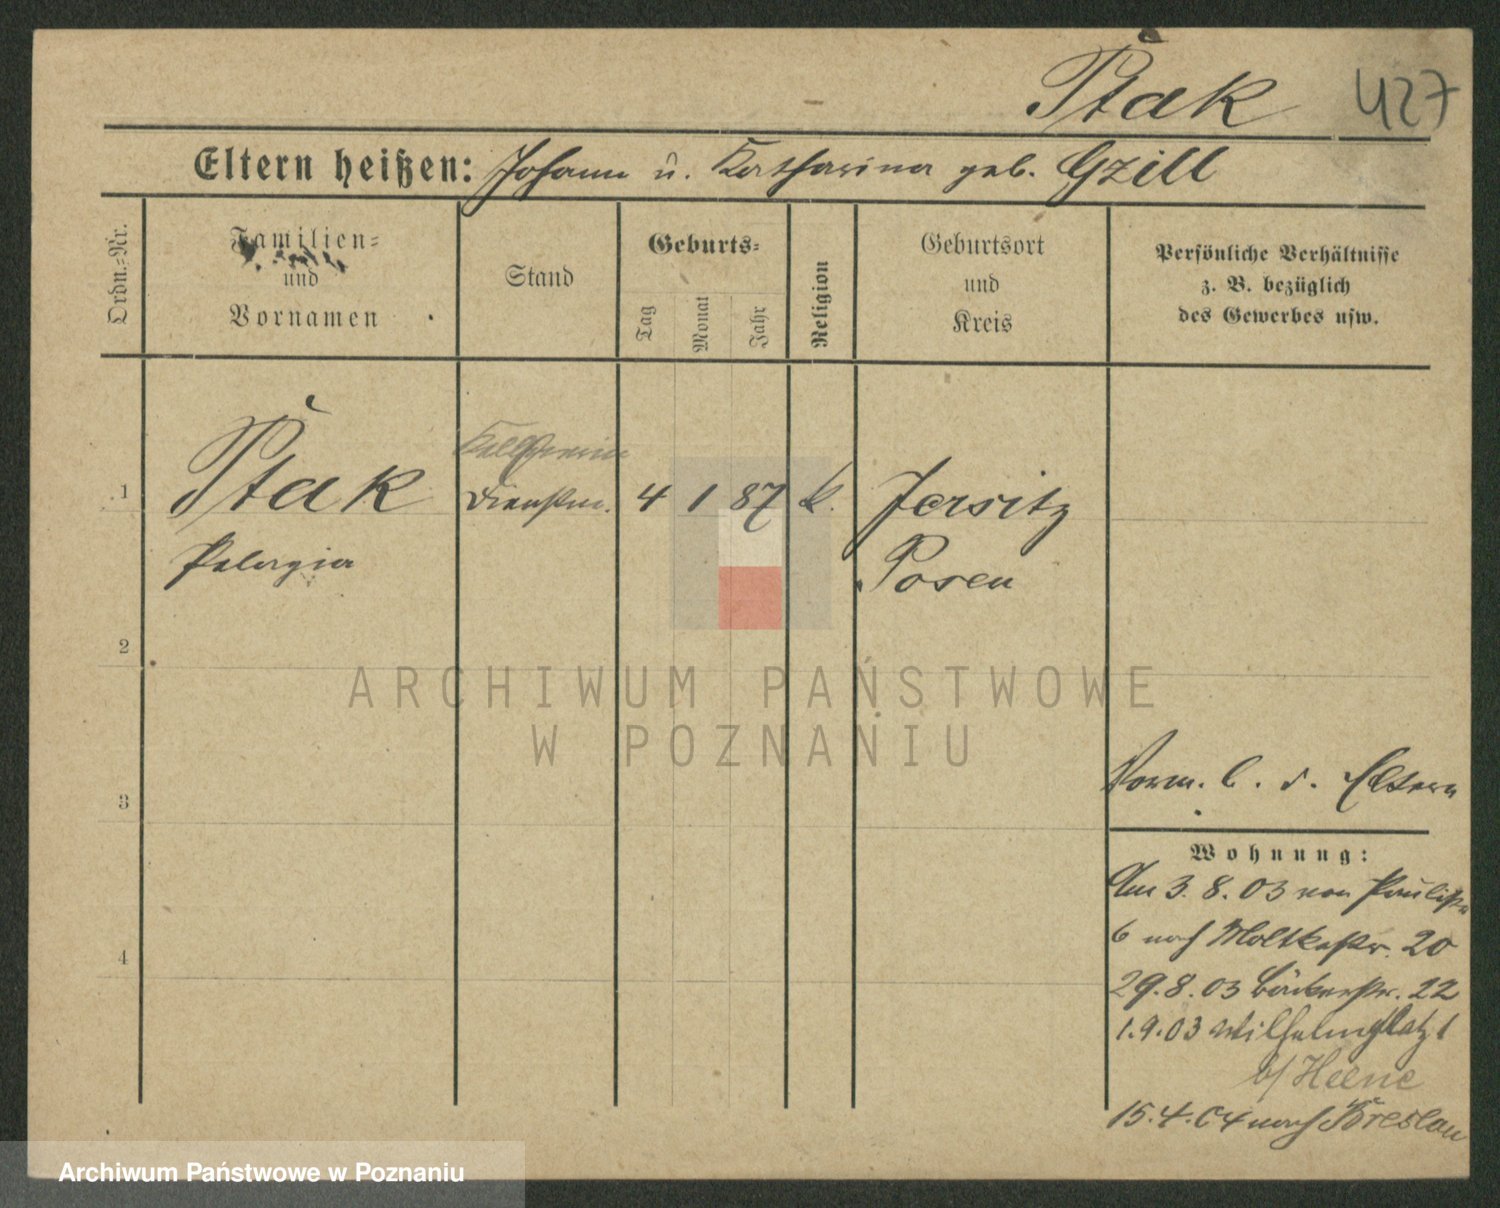 Ptak 427
Eltern heißen: Johann u. Katharina geb. Gzill
Ordn.-Nr.
Familien-
und
Vornamen
Stand
Geburts-
Tag
Monat
Jahr
Religion
Geburtsort
und
Kreis
Persönliche Verhältnisse
z. B. bezüglich
des Gewerbes usw.
Kellnerin
1 Ptak Dienstm. 4 1 87 k. Jersitz
Pelagia Posen
2
ARCHIWUM PAŃSTWOWE
W POZNANIU
3
Vorm. b. d. Eltern
Wohnung:
Am 3.8.03 von Paulistr.
6 nach Moltkestr. 20
4
29.8.03 Bäckerstr. 22
1.9.03 Wilhelmplatz 1
b/ Heene
15.4.04 nach Breslau
Archiwum Państwowe w Poznaniu